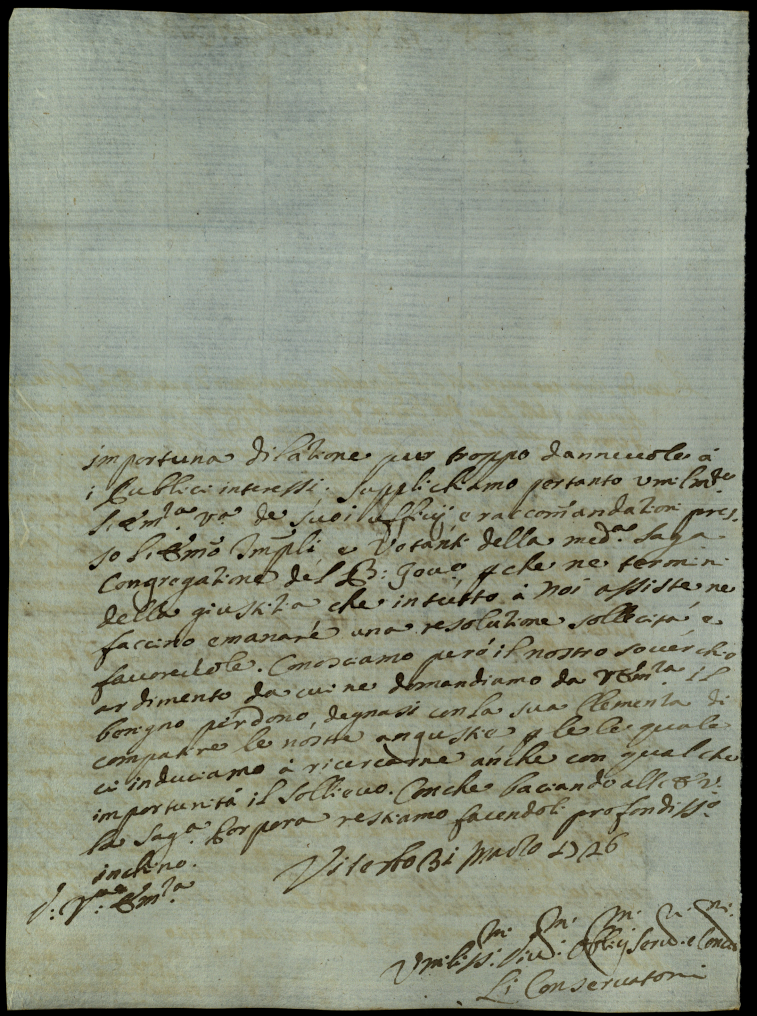 importuna dilatione pur troppo dannevole à
i Publici interessi. Supplichiamo pertanto vmilmte
l'Emza va de suoi ufficij, e raccomandationi pres-
so l'Emo Impli e Votanti della meda Saga
Congregatione del B: Gouo che ne termini
della giustitia che in tutto à noi assiste ne
faccino emanare una resolutione sollecita e
favorevole. Conosciamo però il nostro soverchio
ardimento da cui ne domandiamo da VEmza il
benigno perdono, degnasi con la sua Clemenza di
compatire le nostre angustie le quale
ci induciamo à ricercarne anche con qualche
importunità il sollievo. Con che baciando all'Em V:
la Saga Porpora restiamo facendoli profondisso
inchino.
Viterbo 31 Marzo 1726
D: Va: Emza
Vmiliss: Div: Obblig Serv: e
Li Conservatori